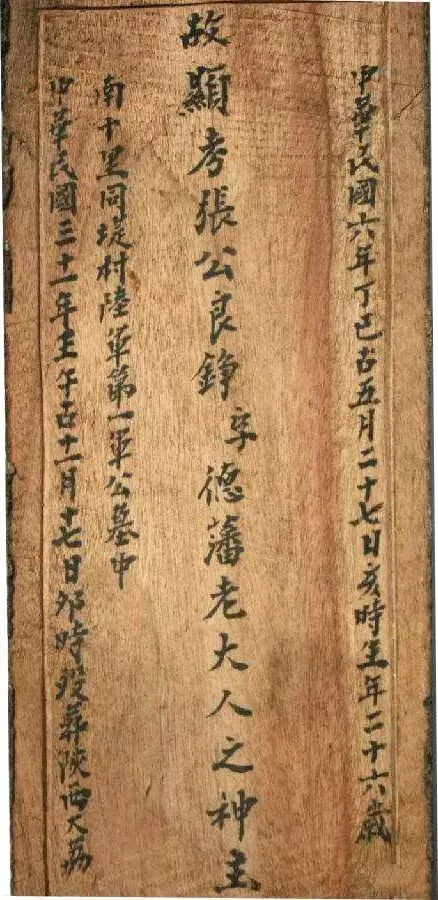 中華民國六年丁巳古五月二十七日亥時生年二十六歲
故顯考張公良錚字德藩老大人之神主
中華民國三十一年壬午古十一月十七日卯時歿葬陝西大荔
南十里同堤村陸軍第一軍公墓中